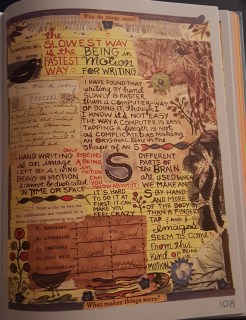 Why do things move?
the
SLOWEST WAY
is the BEING in
FASTEST MOTION
WAY FOR WRITING.
I HAVE FOUND THAT
writing BY HAND
SLOWLY IS FASTER
than a COMPUTER-WAY
OF DOING IT, though I
KNOW it's NOT EASY
THE WAY A COMPUTER IS EASY.
TAPPING A finger IS NOT
as COMPLICATED AS MAKING
AN ORIGINAL LINE IN THE
SHAPE OF AN S
HAND WRITING
is an image
LEFT BY A LIVING
BEING IN MOTION
it cannot be duplicated
IN TIME OR SPACE
ONLY
BY BEING
A BEING
in
MOTION
CAN
YOU KNOW
ABOUT IT
S
IT'S HARD
TO DO IT AT
FIRST. IT CAN
MAKE YOU
FEEL CRAZY
DIFFERENT
PARTS OF
the BRAIN
are USED
WHEN WE
MAKE AN
S BY HAND
AND MORE
OF THE BODY
THAN A FINGER
TAP
images
SEEM TO COME
FROM this
KIND OF BEING
IN MOTION
What makes things move?
108